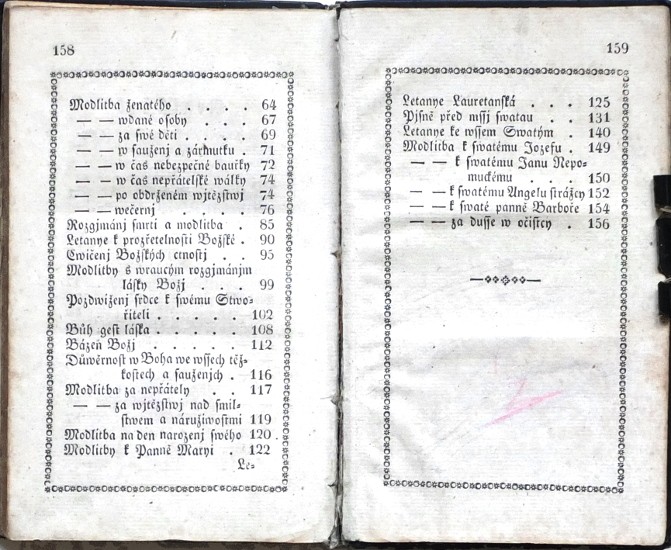 158
Modlitba ženatého . . . . 64
— — wdané osoby . . . 67
— — za swé děti . . . . 69
— — w sauženj a zármutku . 71
— — w čas nebezpečné bauřky 72
— — w čas nepřátelské wálky 74
— — po obdrženém wjtězstwj 74
— — wečernj . . . . 76
Rozgjmánj smrti a modlitba . 85
Letanye k prozřetelnosti Božské . 90
Cwičenj Božských ctnostj . . 95
Modlitby s wraucým rozgjmánjm
lásky Božj . . . 99
Pozdwiženj srdce k swému Stwo-
řiteli . . . . . 102
Bůh gest láska . . . . 108
Bázeň Božj . . . . . 112
Důwěrnost w Boha we wssech těž-
kostech a sauženjch . 116
Modlitba za nepřátely . . 117
— — za wjtězstwj nad smil-
stwem a náružiwostmi 119
Modlitba na den narozenj swého 120
Modlitby k Panně Maryi . 122
Le-
159
Letanye Lauretanská . . . 125
Pjsně před mssj swatau . . 131
Letanye ke wssem Swatým . 140
Modlitba k swatému Jozefu . 149
— — k swatému Janu Nepo-
muckému . . . 150
— — k swatému Angelu strážcy 152
— — k swaté panně Barboře 154
— — za dusse w očistcy . 156